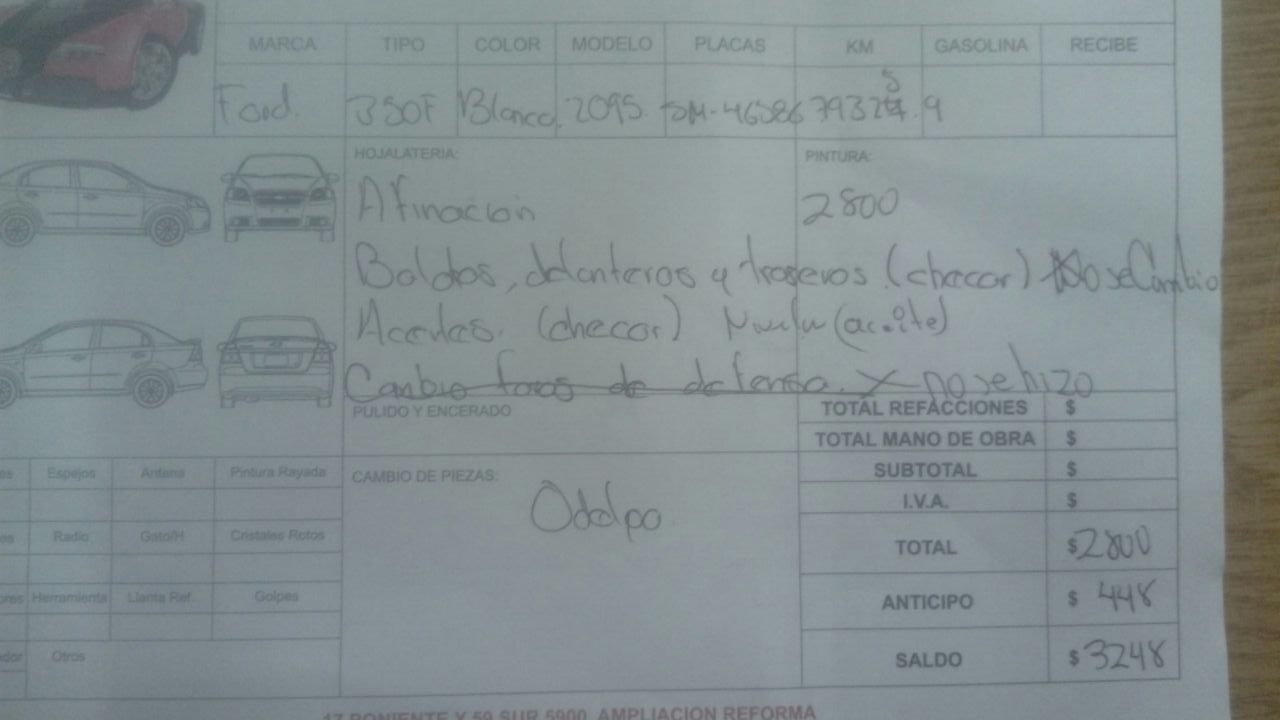 MARCA TIPO COLOR MODELO PLACAS KM GASOLINA RECIBE
Ford. 350F Blanco. 2095. SM-46586 79325. 9
HOJALATERIA: PINTURA:
Afinacion 2800
Balatas, delanteros y traseros (checar) No se Cambio
(checar) (aceite)
Cambio focos de defensa. X no se hizo
PULIDO Y ENCERADO
TOTAL REFACCIONES $
TOTAL MANO DE OBRA $
CAMBIO DE PIEZAS:
SUBTOTAL $
I.V.A. $
Odelpa
TOTAL $2800
ANTICIPO $ 448
SALDO $3248
es Espejos Antena Pintura Rayada
es Radio Gato/H Cristales Rotos
ores Herramienta Llanta Ref. Golpes
dor Otros
17 PONIENTE Y 59 SUR 5900 AMPLIACION REFORMA